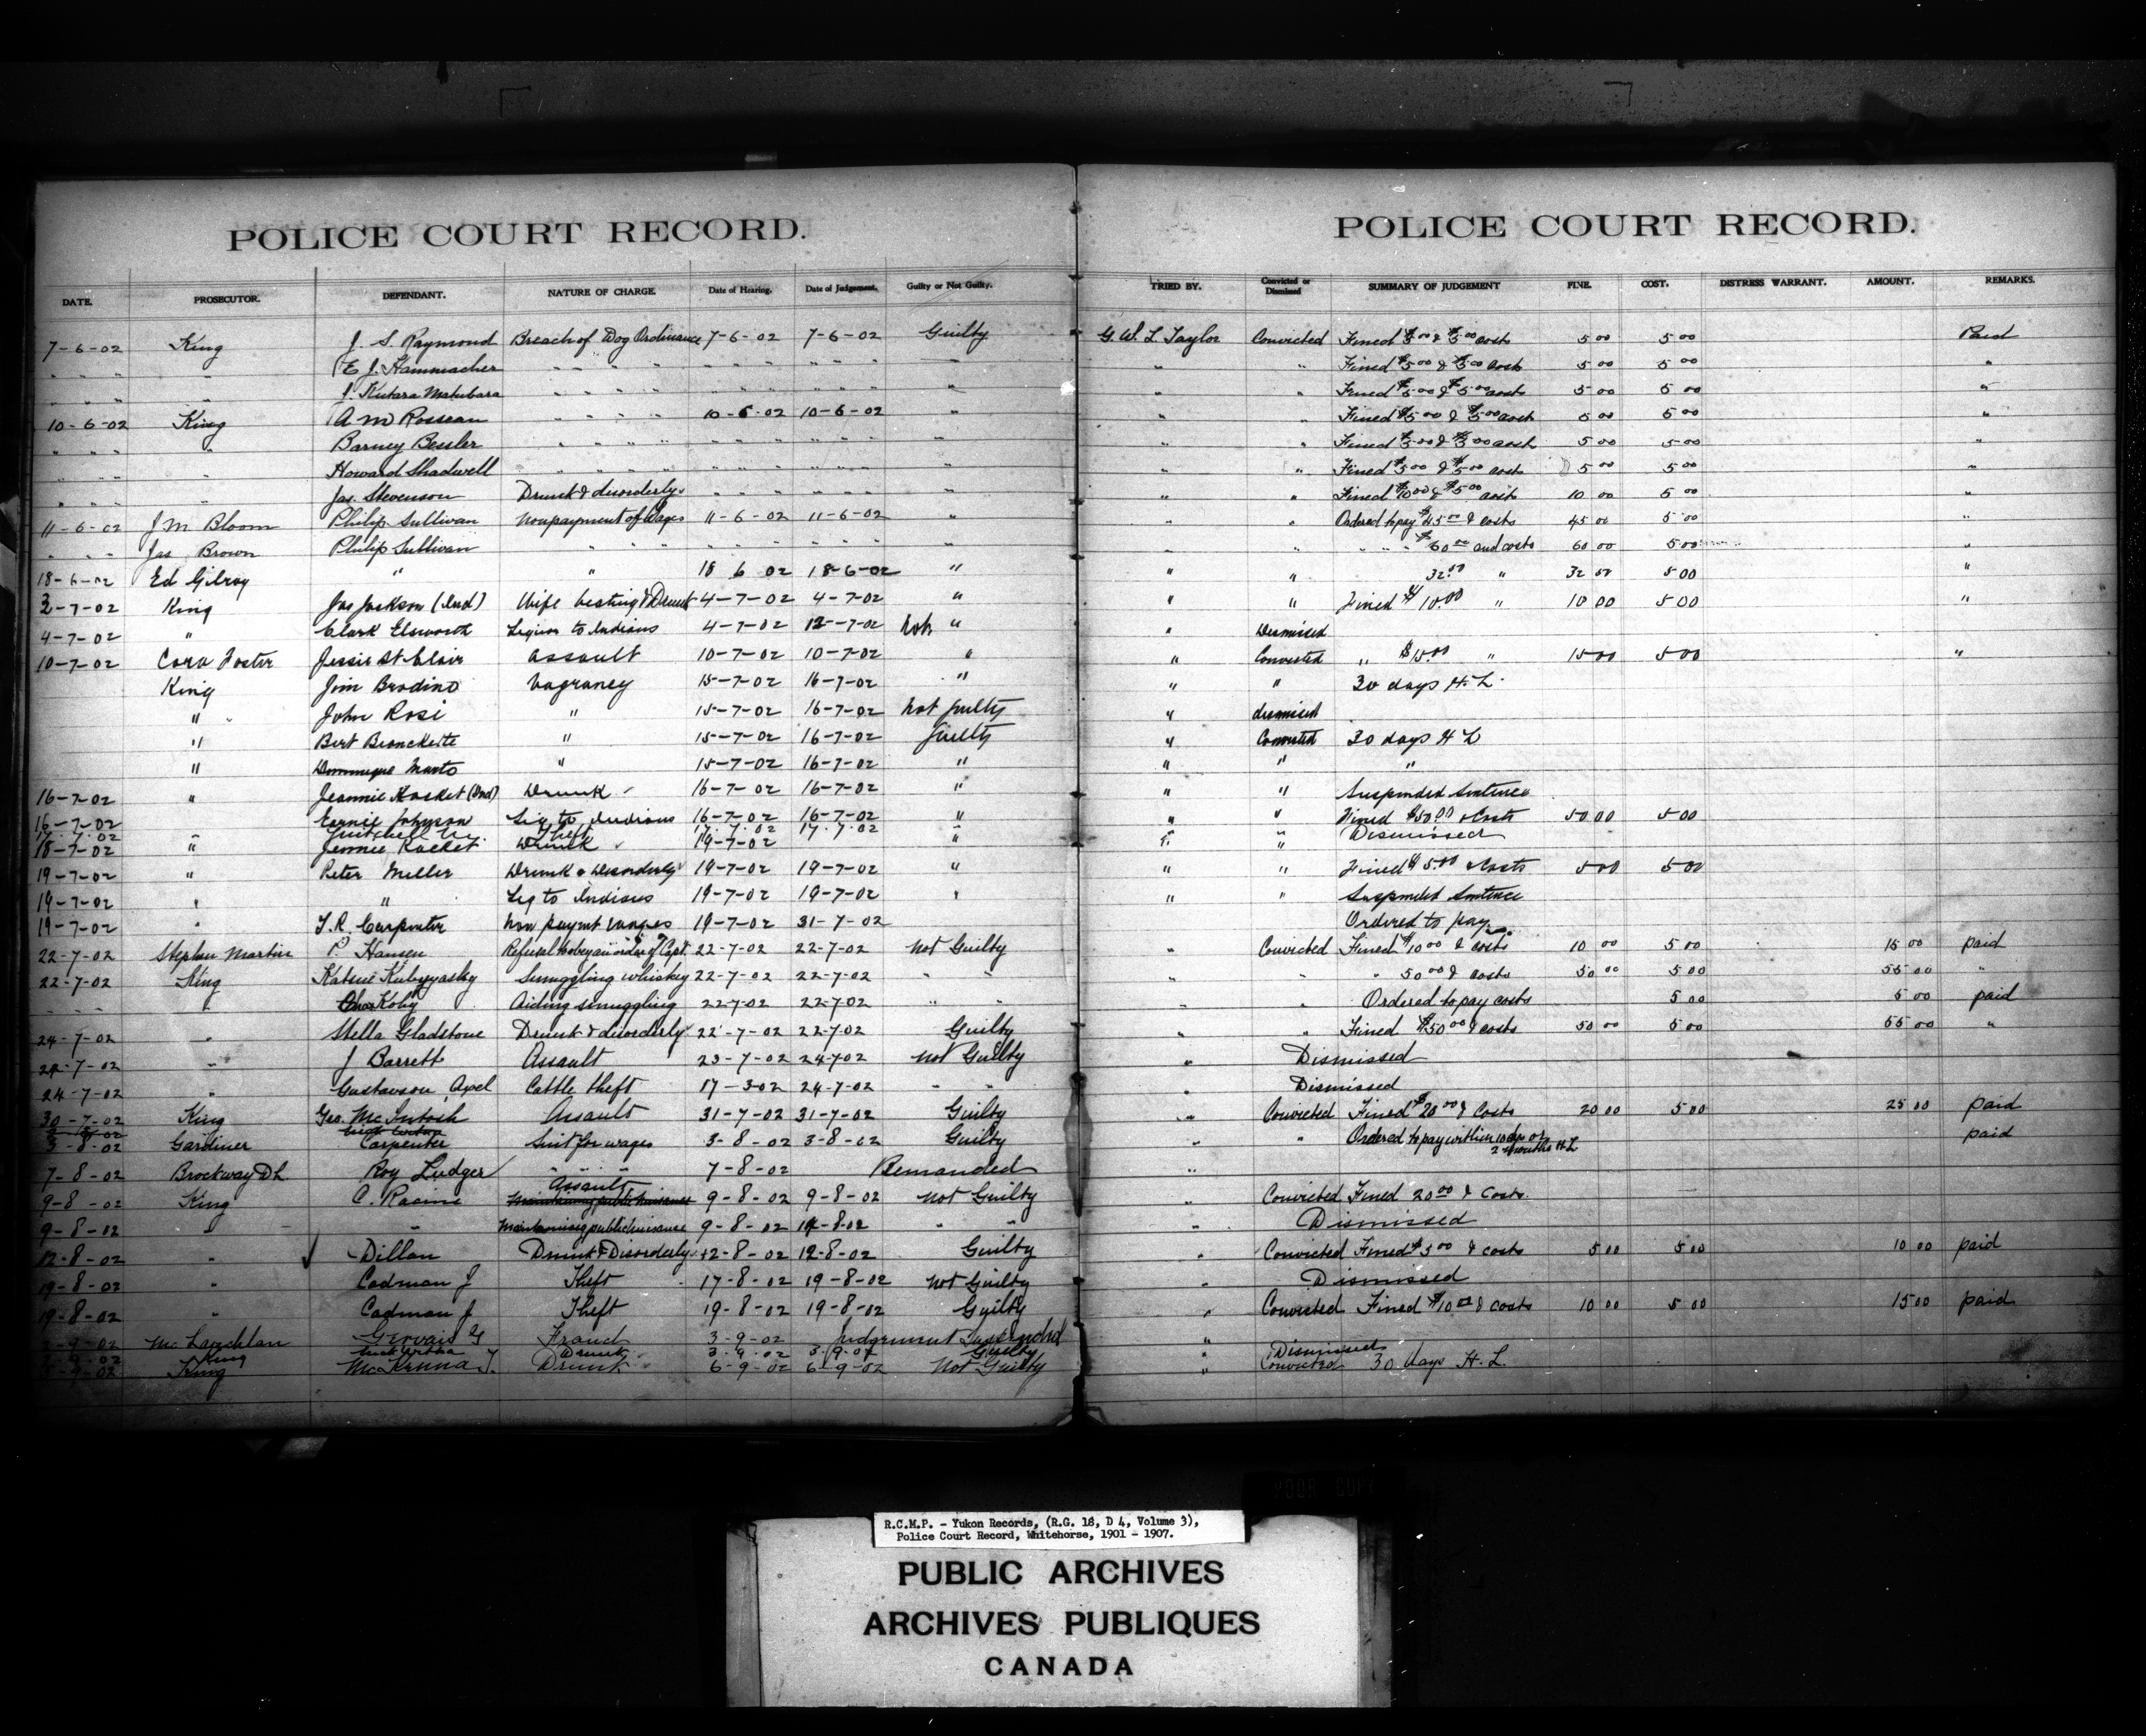 POLICE COURT RECORD.
DATE. PROSECUTOR. DEFENDANT. NATURE OF CHARGE. Date of Hearing. Date of Judgement. Guilty or Not Guilty.
7-6-02 King J. S. Raymond Breach of Dog Ordinance 7-6-02 7-6-02 Guilty
" " " " E. J. Hammacher " " " " " " " " " " "
" " " " J. Kutara Matubara " " " " " " " " " " "
10-6-02 King A M Rosseau " " " " 10-6-02 10-6-02 "
" " " " Barney Bessler " " " " " " " " " " "
" " " " Howard Shadwell " " " " " " " " " " "
" " " " Jas. Stevenson Drunk & disorderly " " " " " " "
11-6-02 J M Bloom Philip Sullivan Nonpayment of Wages 11-6-02 11-6-02 "
" " " Jas Brown Philip Sullivan " " " " " " " " " "
18-6-02 Ed Gilroy " " 18 6 02 18-6-02 "
3-7-02 King Jas Jackson (Ind) Wife beating & Drunk 4-7-02 4-7-02 "
4-7-02 " Clark Elsworth Liquor to Indians 4-7-02 12-7-02 Not "
10-7-02 Cora Foster Jessie St. Clair Assault 10-7-02 10-7-02 "
King Jim Brodino Vagrancy 15-7-02 16-7-02 "
" John Rosi " 15-7-02 16-7-02 Not guilty
" Bert " 15-7-02 16-7-02 Guilty
" Dominique Marto " 15-7-02 16-7-02 "
16-7-02 " Jeannie Kasket (Ind) Drunk 16-7-02 16-7-02 "
16-7-02 Earnie Johnson Liq to Indians 16-7-02 16-7-02 "
17.7.02 Mitchell Theft 17.7.02 17.7.02 "
18-7-02 " Jennie Drunk 19-7-02
19-7-02 " Peter Miller Drunk & Disorderly 19-7-02 19-7-02 "
19-7-02 " " Liq to Indians 19-7-02 19-7-02 "
19-7-02 " T. R. Carpenter Non paymt wages 19-7-02 31-7-02
22-7-02 Stephen Martin P. Hansen Refusal to obey an order of Capt. 22-7-02 22-7-02 Not Guilty
22-7-02 King Smuggling whiskey 22-7-02 22-7-02 " "
" " " " Koby Aiding smuggling 22-7-02 22-7-02 " "
24-7-02 " Stella Gladstone Drunk & disorderly 22-7-02 22-7-02 Guilty
24-7-02 " J Barrett Assault 23-7-02 24-7-02 Not Guilty
24-7-02 " Gustavson, Axel Cattle theft 17-3-02 24-7-02 " "
30-7-02 King Geo. McIntosh Assault 31-7-02 31-7-02 Guilty
3-8-02 Gardiner Carpenter Suit for wages 3-8-02 3-8-02 Guilty
7-8-02 Brockway D L Roy Ludger " " " 7-8-02 Remanded
9-8-02 King C. Racine Assault 9-8-02 9-8-02 Not Guilty
9-8-02 " " Maintaining public nuisance 9-8-02 14-8-02 " "
12-8-02 " Dillon Drunk & Disorderly 12-8-02 12-8-02 Guilty
19-8-02 " Cadman J Theft 17-8-02 19-8-02 Not Guilty
19-8-02 " Cadman J Theft 19-8-02 19-8-02 Guilty
3-9-02 McLauchlan Gervais G Fraud 3-9-02 Judgement Suspended
3-9-02 King Drunk 3.9.02 3/9-02 Guilty
King McKenna J. Drunk 6-9-02 6-9-02 Not Guilty
POLICE COURT RECORD.
TRIED BY. Convicted or Dismissed SUMMARY OF JUDGEMENT FINE. COST. DISTRESS WARRANT. AMOUNT. REMARKS.
G. W. L Taylor Convicted Fined $5.00 & $5.00 costs 5 00 5 00 Paid
" " Fined $5.00 & $5.00 costs 5 00 5 00 "
" " Fined $5.00 & $5.00 costs 5 00 5 00 "
" " Fined $5.00 & $5.00 costs 5 00 5 00 "
" " Fined $5.00 & $5.00 costs 5 00 5 00 "
" " Fined $5.00 & $5.00 costs 5 00 5 00 "
" " Fined $10.00 & $5.00 costs 10 00 5 00 "
" " Ordered to pay $45.00 & costs 45 00 5 00 "
" " " " " $60.00 and costs 60 00 5 00 "
" " 32.00 " 32 00 5 00 "
" " Fined $10.00 " 10 00 5 00 "
" Dismissed
" Convicted " $15.00 " 15 00 5 00 "
" " 30 days H. L.
" dismissed
" Convicted 30 days H L
" " "
" " Suspended Sentence
" " Fined $50.00 & Costs 50 00 5 00
" " Dismissed
" "
" " Fined $5.00 & Costs 5 00 5 00
" " Suspended Sentence
Ordered to pay
" Convicted Fined $10.00 & costs 10 00 5 00 15 00 paid
" " " 50.00 & costs 50 00 5 00 55 00 "
" " Ordered to pay costs 5 00 5 00 paid
" " Fined $50.00 & costs 50 00 5 00 55 00 "
" Dismissed
" Dismissed
" Convicted Fined $20.00 & Costs 20 00 5 00 25 00 paid
" " Ordered to pay within 10 days or 2 months H L paid
"
Convicted Fined 20.00 & Costs.
Dismissed
" Convicted Fined $5.00 & costs 5 00 5 00 10 00 paid
" Dismissed
" Convicted Fined $10.00 & costs 10 00 5 00 15 00 paid
"
Dismissed
" Convicted 30 days H. L.
R.C.M.P. - Yukon Records, (R.G. 18, D 4, Volume 3),
Police Court Record, Whitehorse, 1901 - 1907.
PUBLIC ARCHIVES
ARCHIVES PUBLIQUES
CANADA